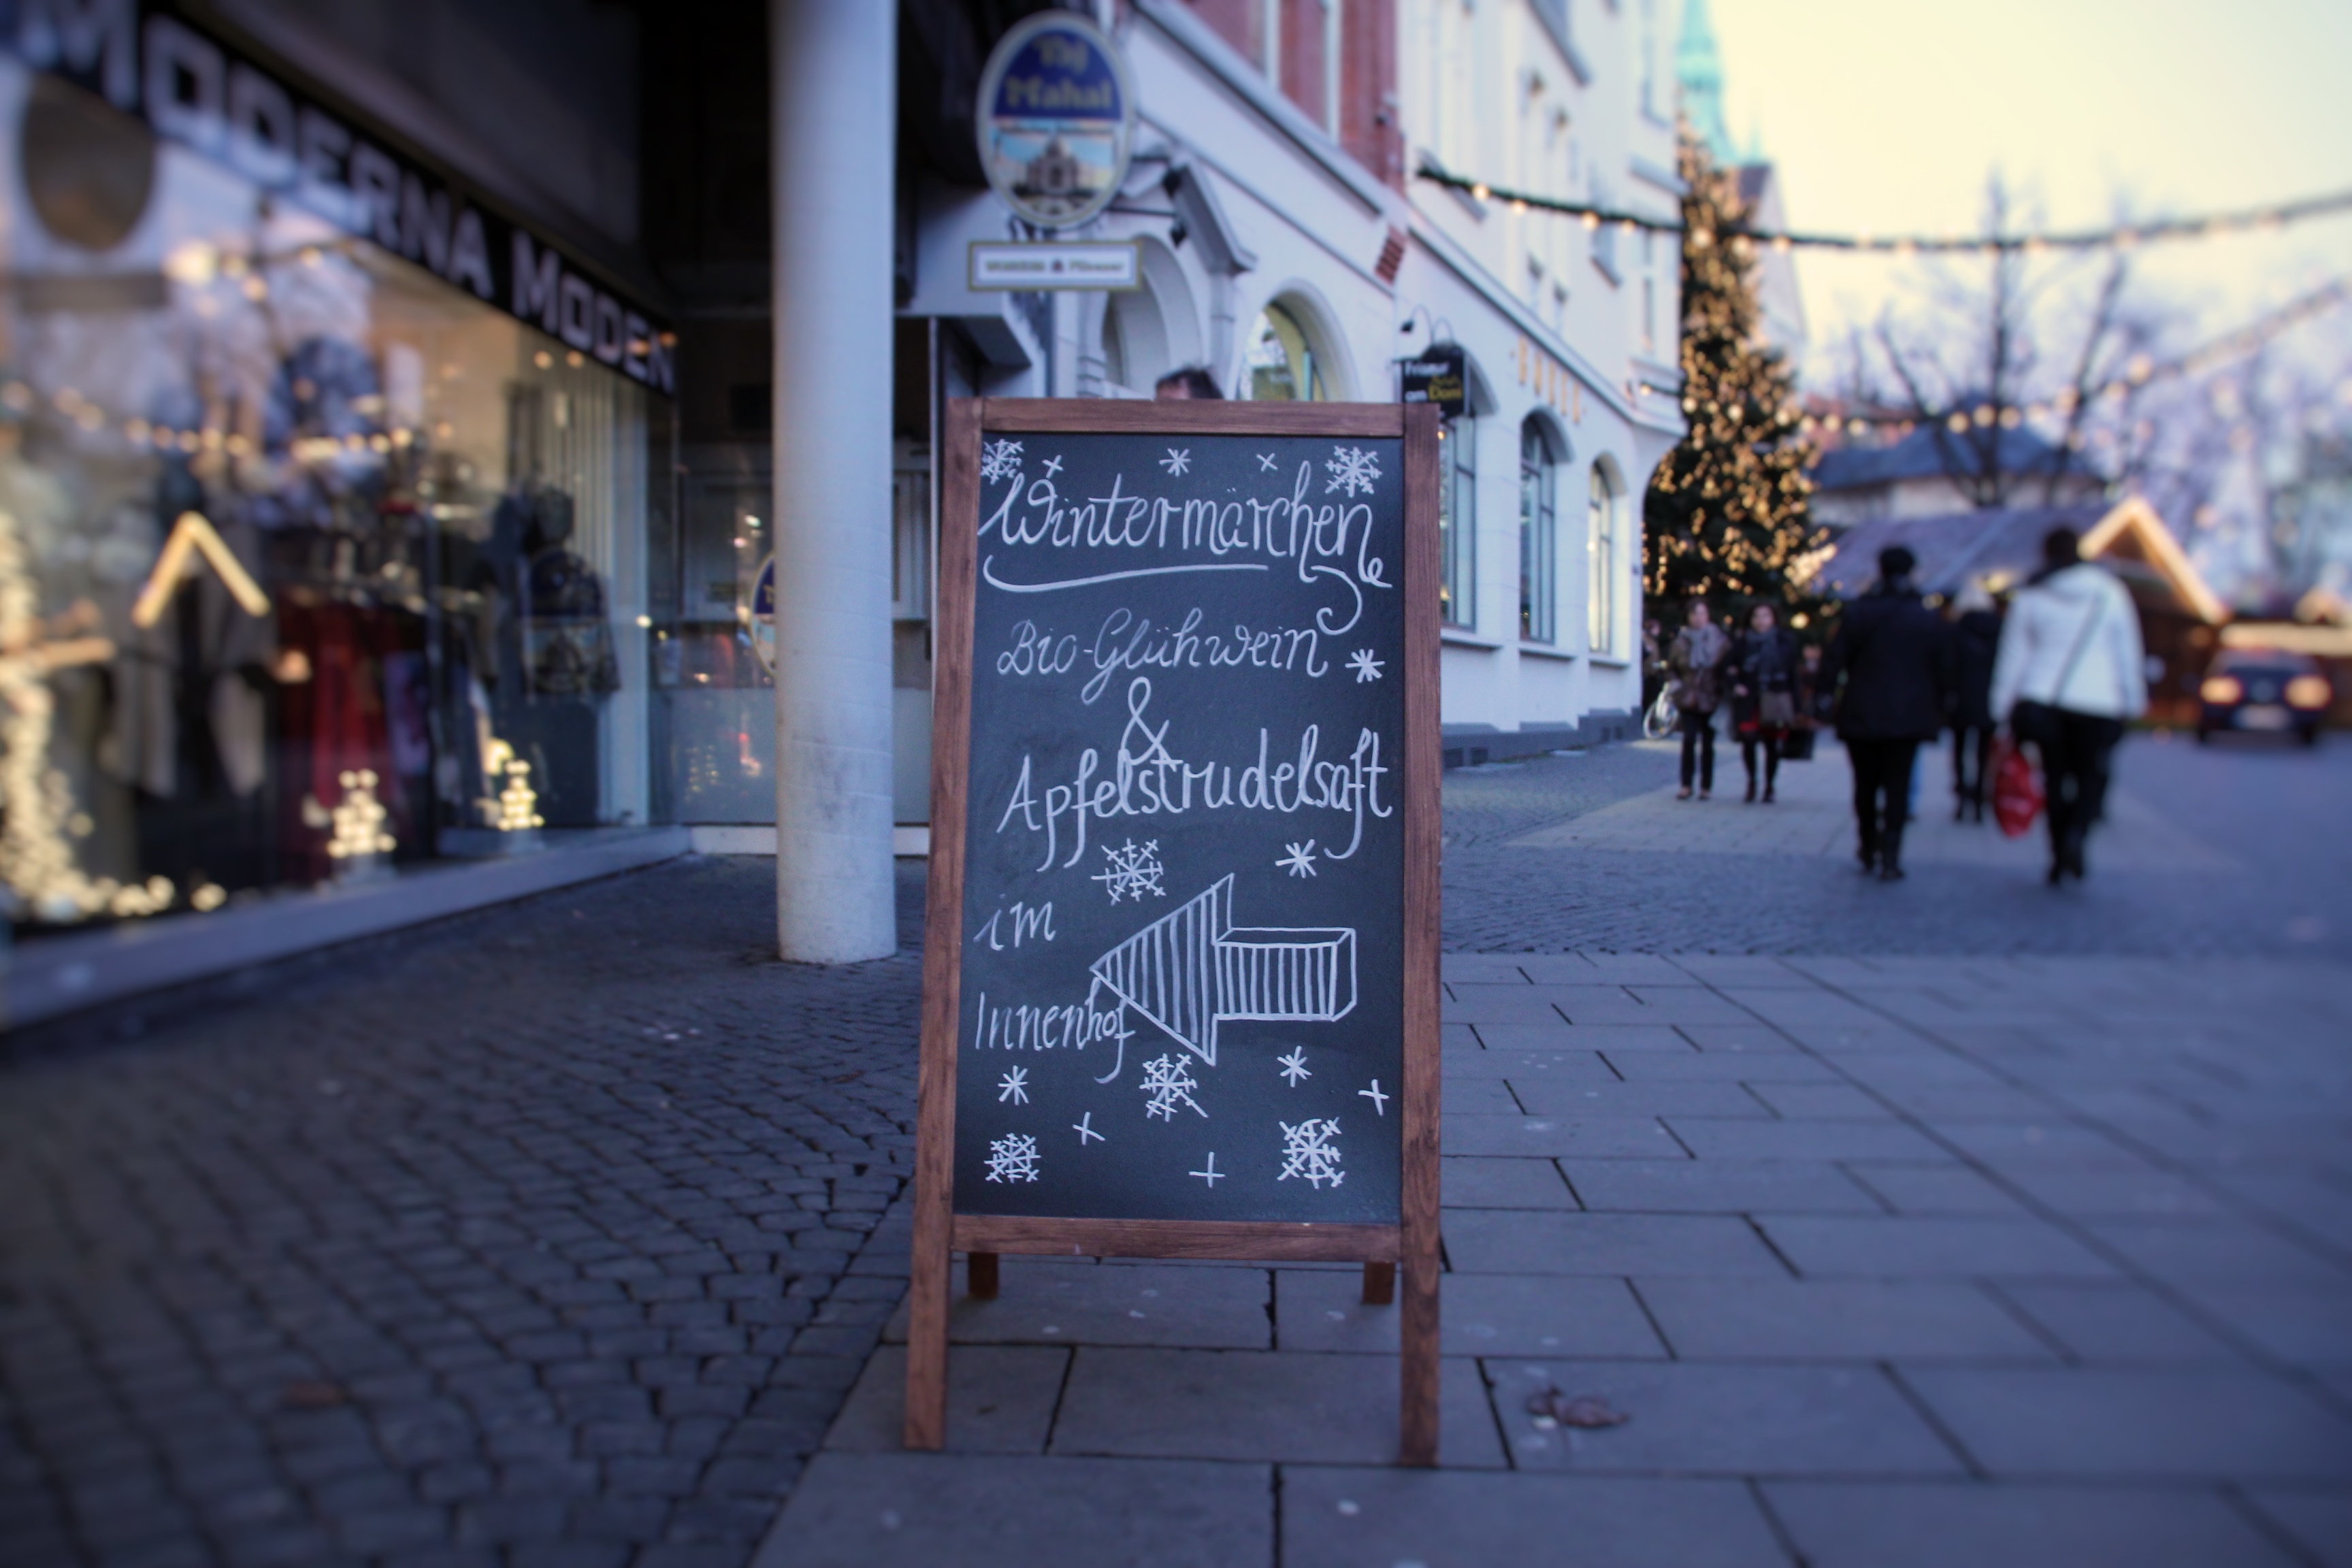 MODERNA MODEN
Taj
Mahal
Friseur
am Dom
Wintermärchen
Bio-Glühwein
&
Apfelstrudelsaft
im
Innenhof